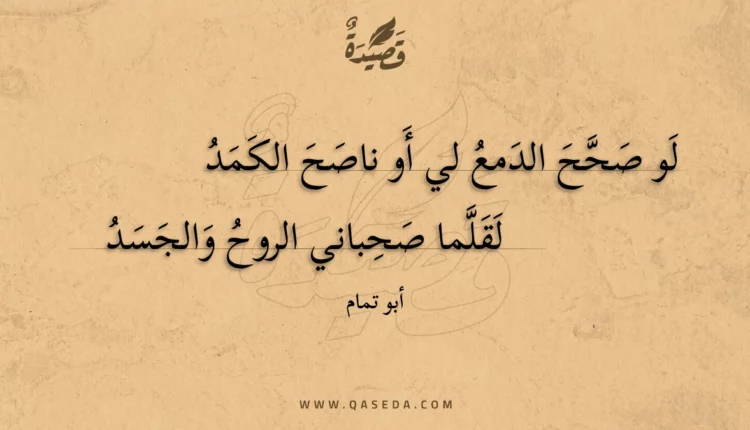 قَصِيدَةٌ
لَو صَحَّحَ الدَمعُ لي أَو ناصَحَ الكَمَدُ
لَقَلَّما صَحِباني الروحُ وَالجَسَدُ
أبو تمام
WWW.QASEDA.COM